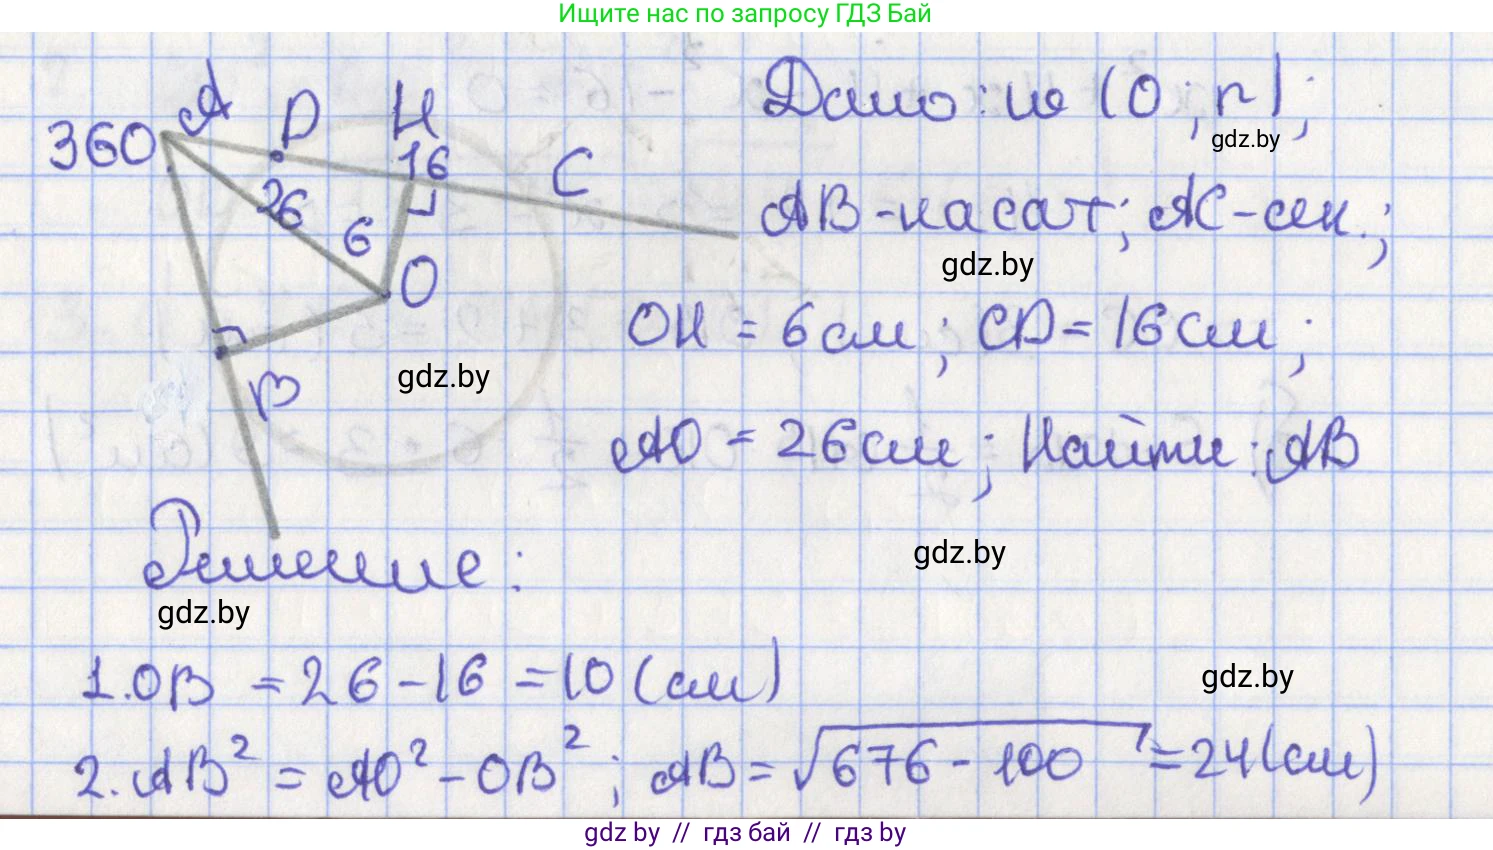 Ищите нас по запросу ГДЗ Бай
360 A D H 16 C
26 6 O
B
Дано: ω (O; r);
gdz.by
AB - касат; AC - сек.;
gdz.by
OH = 6 см; CD = 16 см;
gdz.by
AO = 26 см; Найти: AB
gdz.by
Решение:
gdz.by
1. OB = 26 - 16 = 10 (см)
gdz.by
2. AB² = AO² - OB²; AB = √676 - 100 = 24 (см)
gdz.by // гдз бай // гдз by